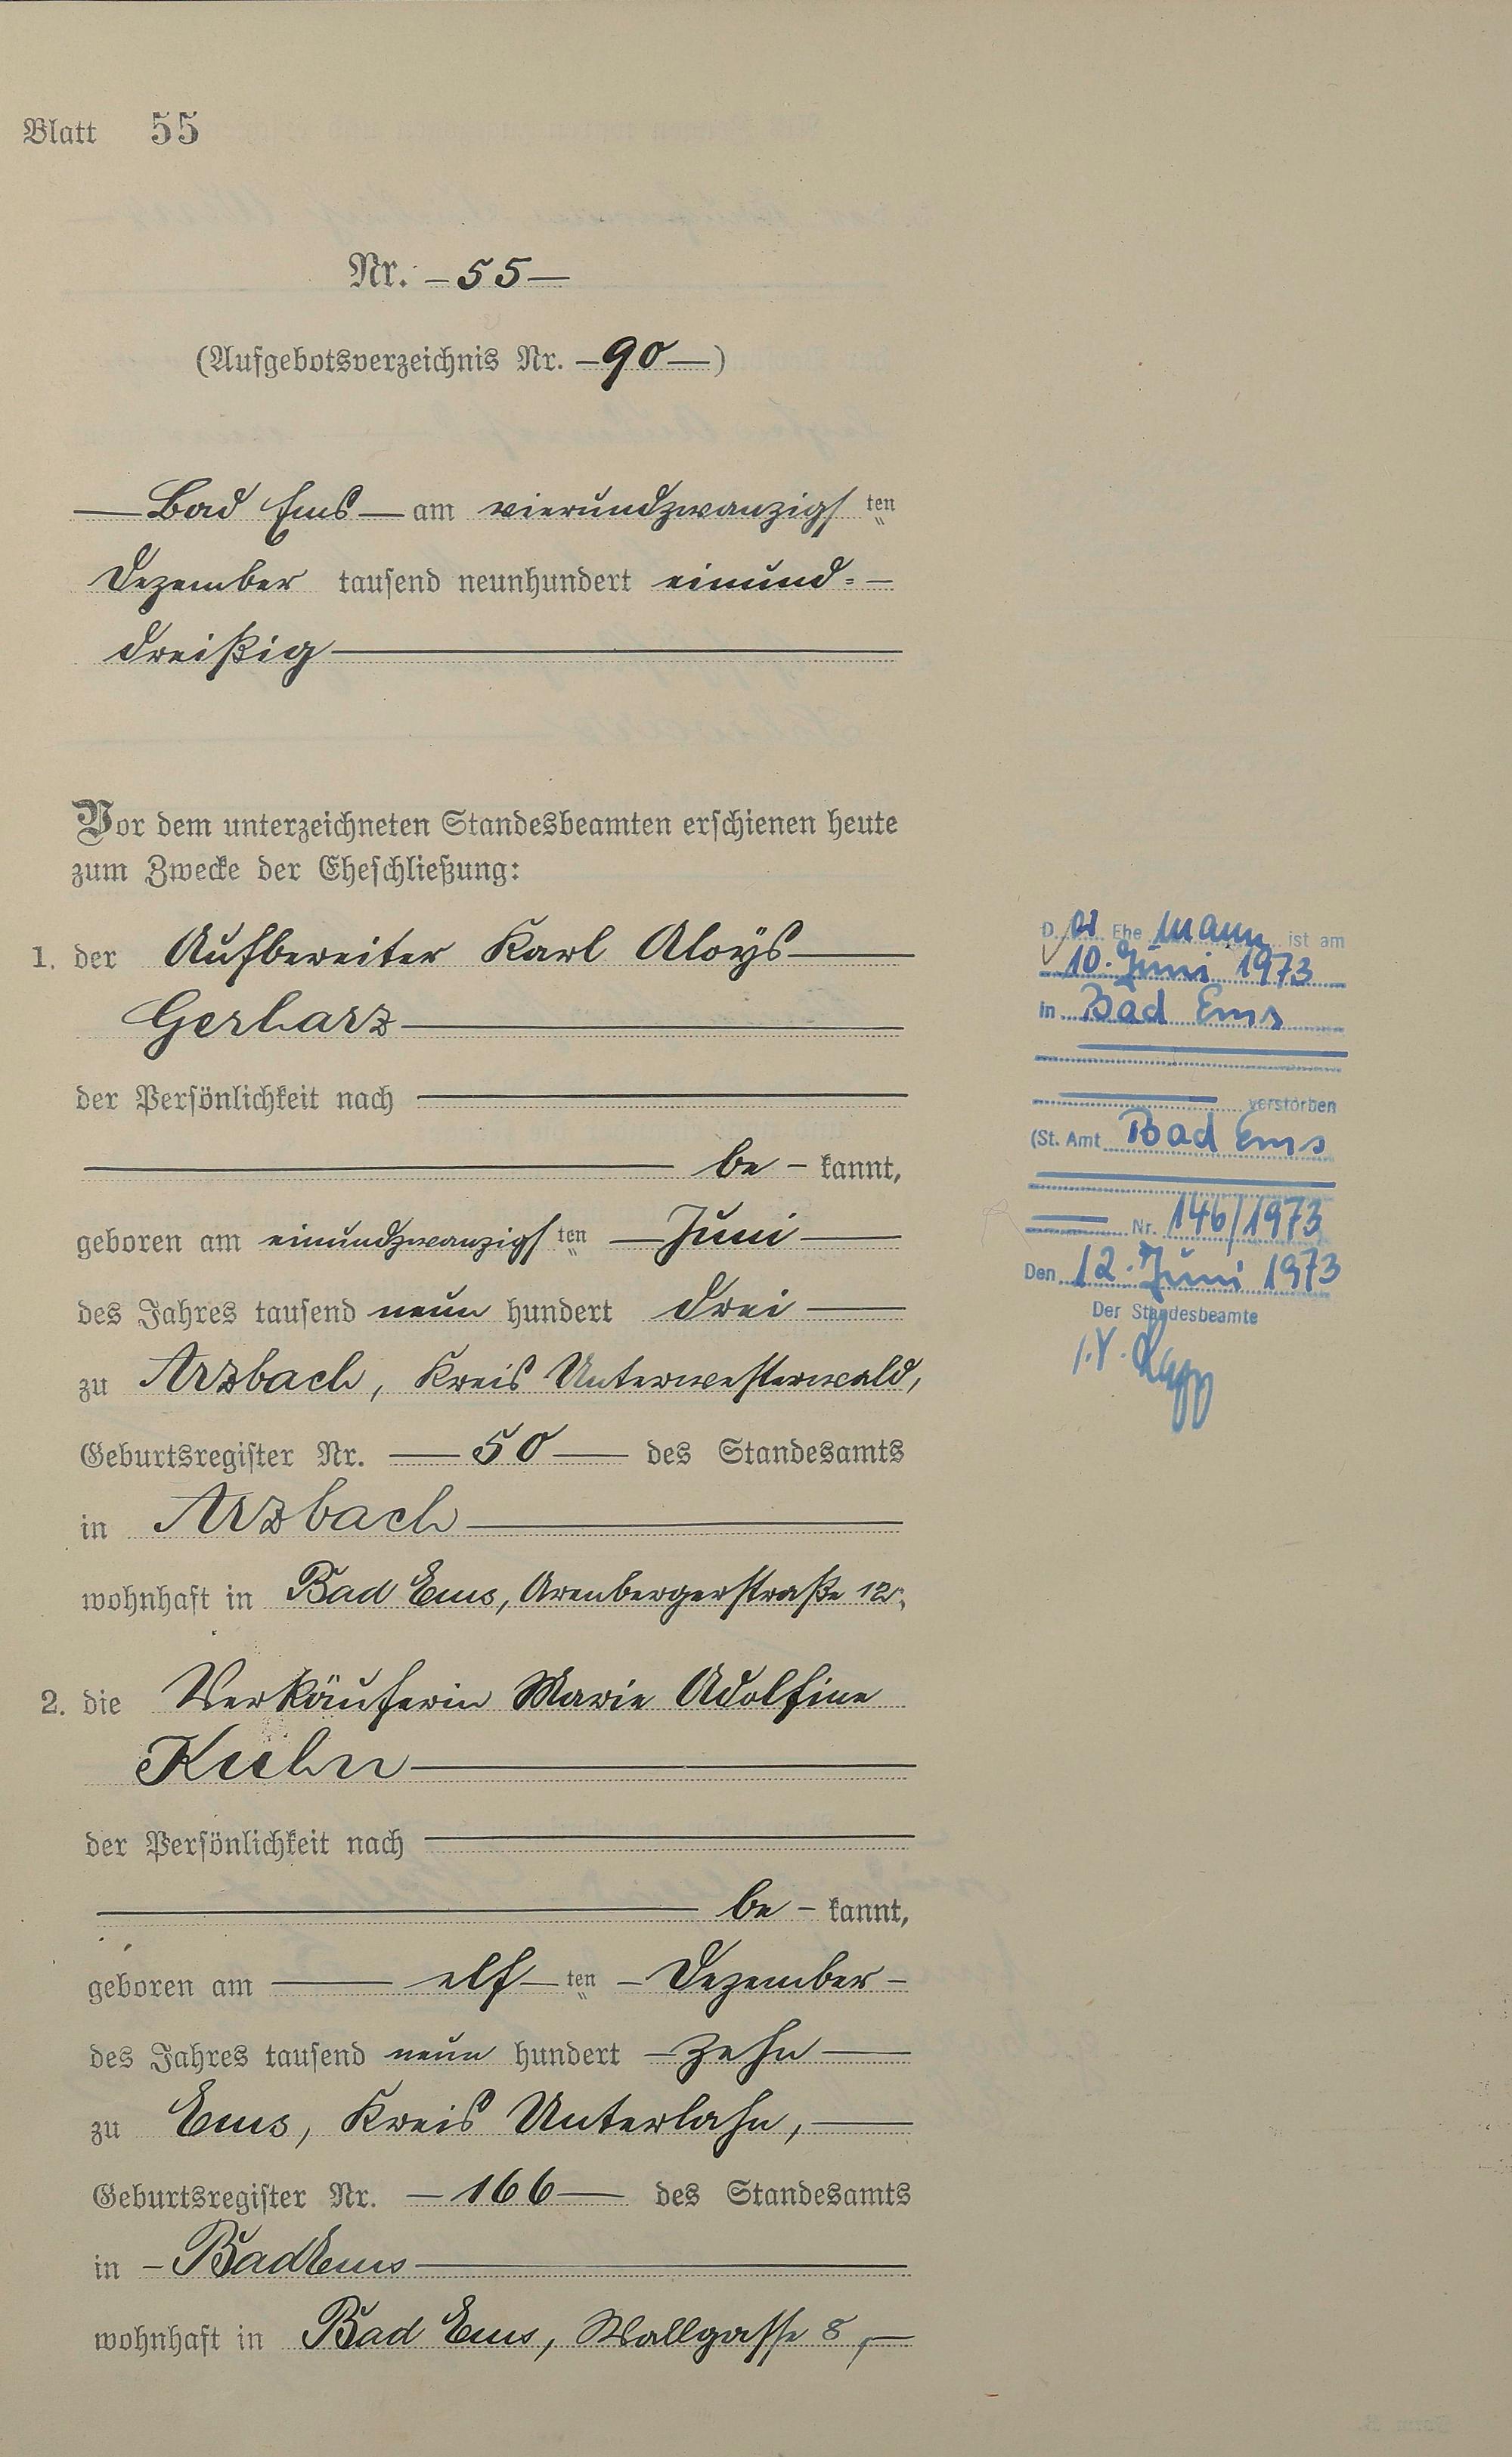 Blatt 55
Nr. – 55 —
(Aufgebotsverzeichnis Nr. – 90 —)
— Bad Ems — am vierundzwanzigsten
Dezember tausend neunhundert einund= –
dreißig —
Vor dem unterzeichneten Standesbeamten erschienen heute
zum Zwecke der Eheschließung:
1. der Aufbereiter Karl Aloÿs —
Gerharz —
der Persönlichkeit nach —
— be – kannt,
geboren am einundzwanzigsten — Juni —
des Jahres tausend neun hundert drei —
zu Arzbach, Kreis Unterwesterwald,
Geburtsregister Nr. — 50 — des Standesamts
in Arzbach —
wohnhaft in Bad Ems, Arenbergerstraße 12,
2. die Verkäuferin Marie Adolfine
Kuhn —
der Persönlichkeit nach —
— be – kannt,
geboren am — elf – ten – Dezember –
des Jahres tausend neun hundert – zehn —
zu Ems, Kreis Unterlahn, —
Geburtsregister Nr. – 166 — des Standesamts
in – Bad Ems —
wohnhaft in Bad Ems, Wallgasse 8, –
D er Ehe mann ist am
10. Juni 1973
in Bad Ems
verstorben
(St. Amt Bad Ems
Nr. 146/1973
Den 12. Juni 1973
Der Standesbeamte
I.V.